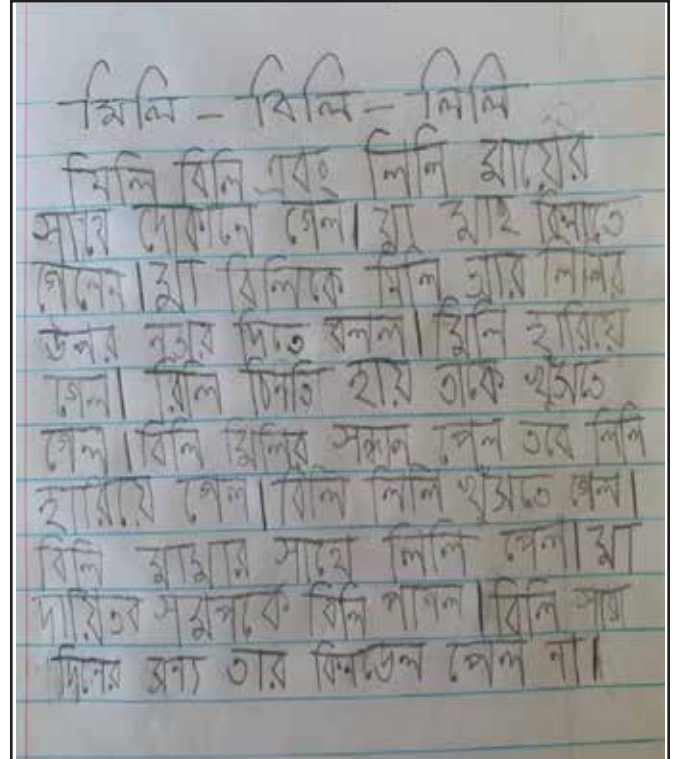 মিলি - বিলি - লিলি
মিলি বিলি এবং লিলি মায়ের
সাথে দোকানে গেল। মা মাছ কিনতে
গেলেন। মা বিলিকে মিলি আর লিলির
উপর নজর দিতে বলল। মিলি হারিয়ে
গেল। বিলি হায় তাকে খুঁসতে
গেল। বিলি মিলির সন্ধান পেল তবে লিলি
হারিয়ে গেল। বিলি লিলি খুঁসতে গেল।
বিলি মামার সাথে লিলি পেল। মা
দায়িতব সমপর্কে বিলি পাগল। বিলি
দিনের জন্য তার কিনডেল পেল না।